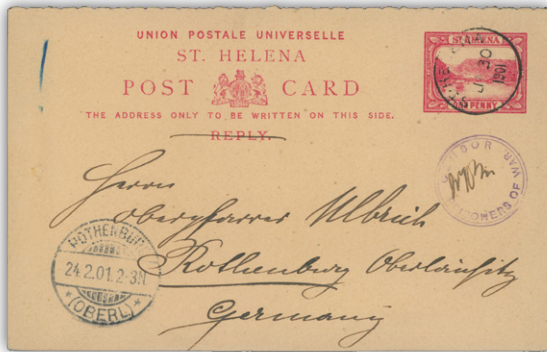 UNION POSTALE UNIVERSELLE
ST. HELENA
POST CARD
THE ADDRESS ONLY TO BE WRITTEN ON THIS SIDE.
REPLY.
ST. HELENA
PENNY
1901
CENSOR
PRISONERS OF WAR
Herrn
Oberpfarrer Ulbrich
Rothenburg Oberlausitz
Germany
ROTHENBURG
24.2.01.2-3N
*(OBERL)*